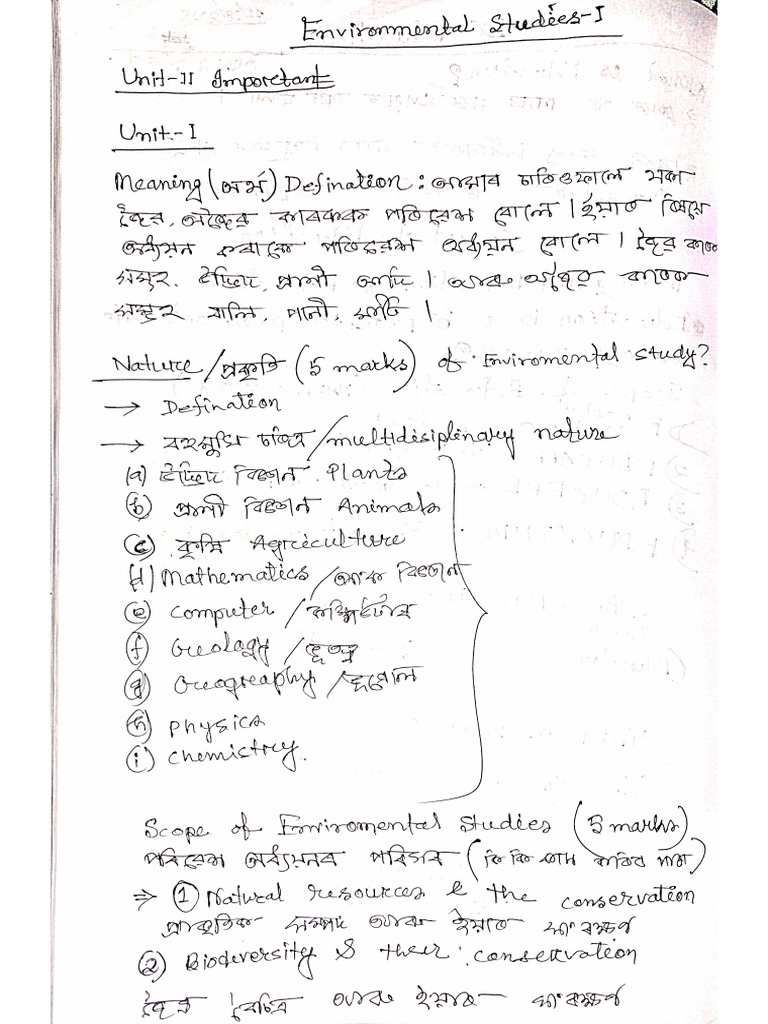 Environmental Studies-I
Unit-II Imporetant
Unit-I
Meaning (অর্থ) Defination: আমাৰ চাৰিওফালে থকা
জৈৱ, অজৈৱ কাৰকক পৰিৱেশ বোলে। ইয়াত বিষয়ে
অধ্যয়ন কৰাকে পৰিৱেশ অধ্যয়ন বোলে। জৈৱ কাৰক
সমূহ, উদ্ভিদ, প্ৰাণী, আদি। আৰু অজৈৱ কাৰক
সমূহ বালি, পানী, মাটি।
Nature/প্ৰকৃতি (5 marks) of Enviromental study?
→ Defination
→ বহুমুখি চৰিত্ৰ/multidisiplinary nature
(a) উদ্ভিদ বিজ্ঞান Plants
(b) প্ৰাণী বিজ্ঞান Animals
(c) কৃষি Agreculture
(d) Mathematics/অংক বিজ্ঞান
(e) Computer/কম্পিউটাৰ
(f) Geology/ভূতত্ত্ব
(g) Geography/ভূগোল
(h) physics
(i) chemistry.
Scope of Enviromental Studies (5 marks)
পৰিৱেশ অধ্যয়নৰ পৰিসৰ (কি কি কাম কৰিব পাৰা)
⇒ (1) Natural resources & the conservation
প্ৰাকৃতিক সম্পদ আৰু ইয়াৰ সংৰক্ষণ
(2) Biodeversity & their conservation
জৈৱ বৈচিত্ৰ আৰু ইয়াৰ সংৰক্ষণ